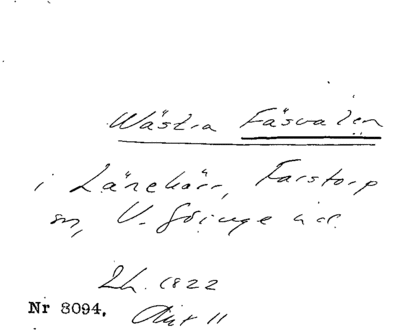 Wästra Fäsvalen
i Länekärr, Farstorp
sn, V. Göinge hd.
Lh. 1822
Nr 8094. Akt 11